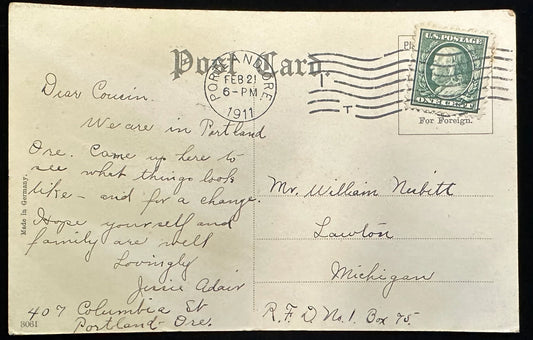 Post Card.
PORTLAND, ORE.
FEB 21
6-PM
1911
U.S. POSTAGE
ONE CENT
For Foreign.
Dear Cousin.
We are in Portland
Ore. Came up here to
see what things look
like - and for a change.
Hope yourself and
family are well
Lovingly
Jessie Adair
407 Columbia St
Portland - Ore.
Mr. William Nesbitt
Lawton
Michigan
R.F.D. No. 1. Box 75.
Made in Germany.
8061